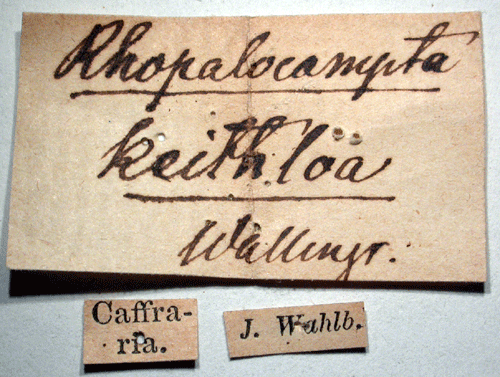 Rhopalocampta
keithlöa
Wallengr.
Caffra-
ria.
J. Wahlb.